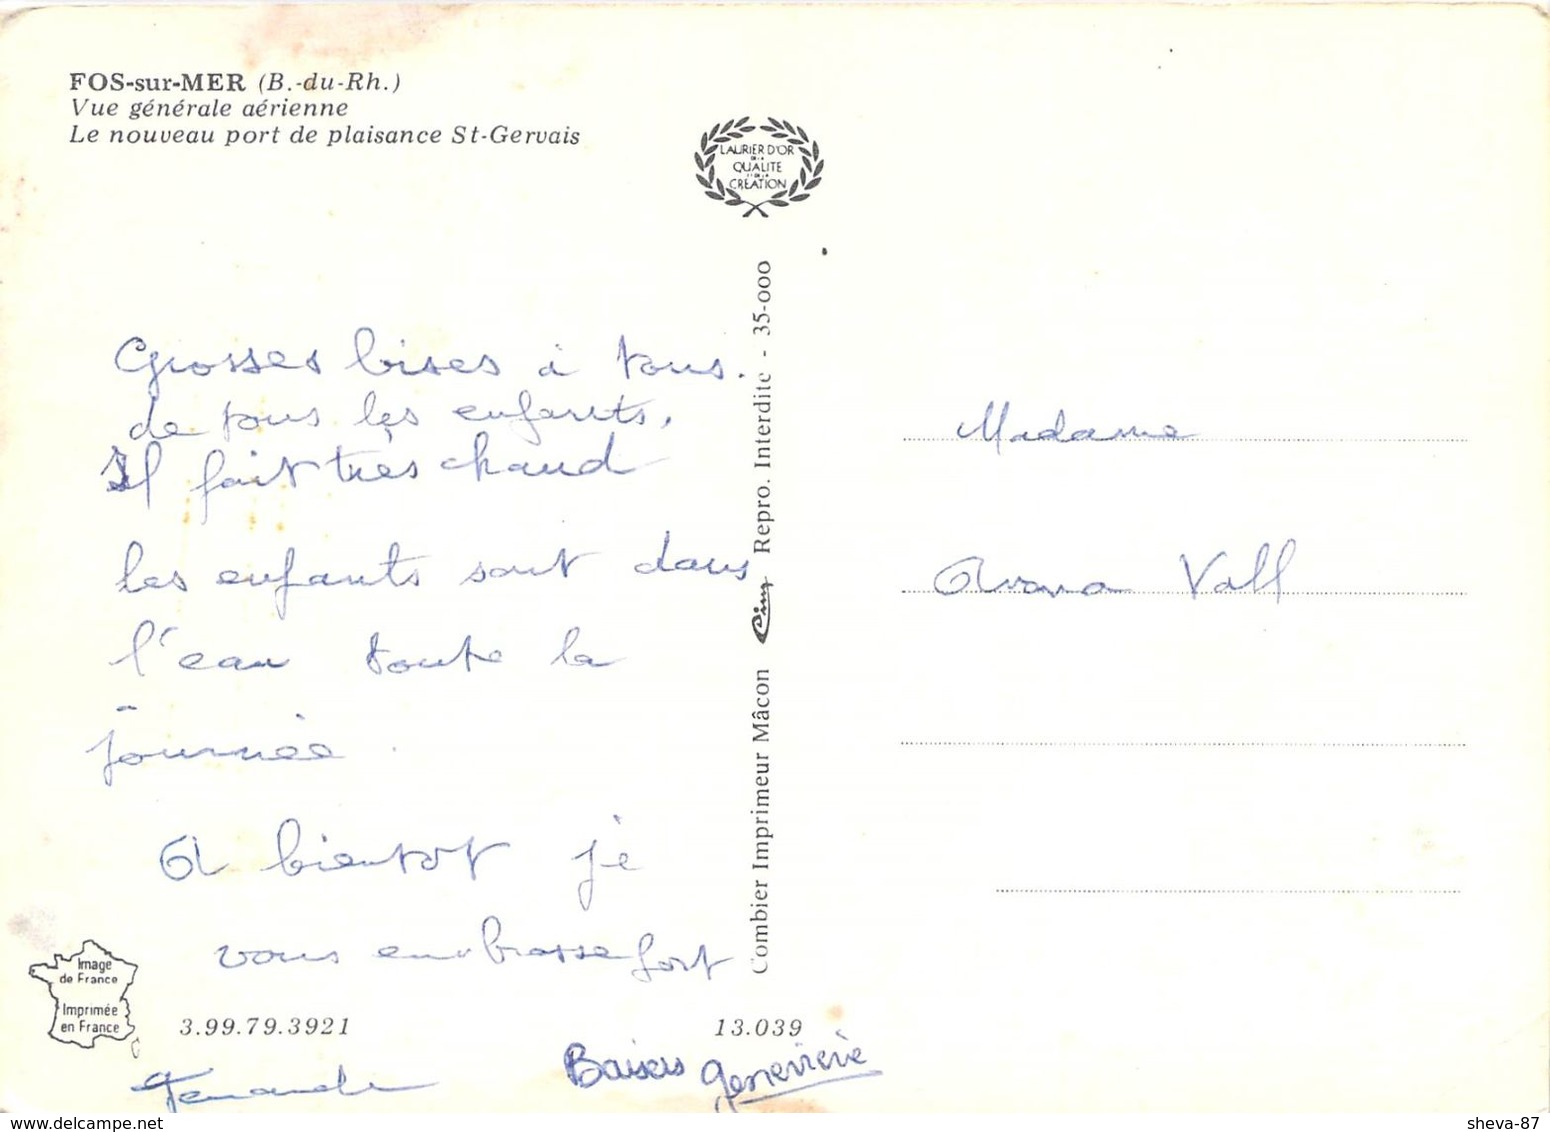 FOS-sur-MER (B.-du-Rh.)
Vue générale aérienne
Le nouveau port de plaisance St-Gervais
LAURIER D'OR
DE LA
QUALITE
ET DE LA
CREATION
Grosses bises à tous.
de tous les enfants.
Il fait très chaud
les enfants sont dans
l'eau toute la
journée.
A bientot je
vous embrasse fort
Baisers Geneviève
Combier Imprimeur Mâcon Cim Repro. Interdite - 35-000
Image
de France
Imprimée
en France
3.99.79.3921
13.039
Madame
Vall
sheva-87